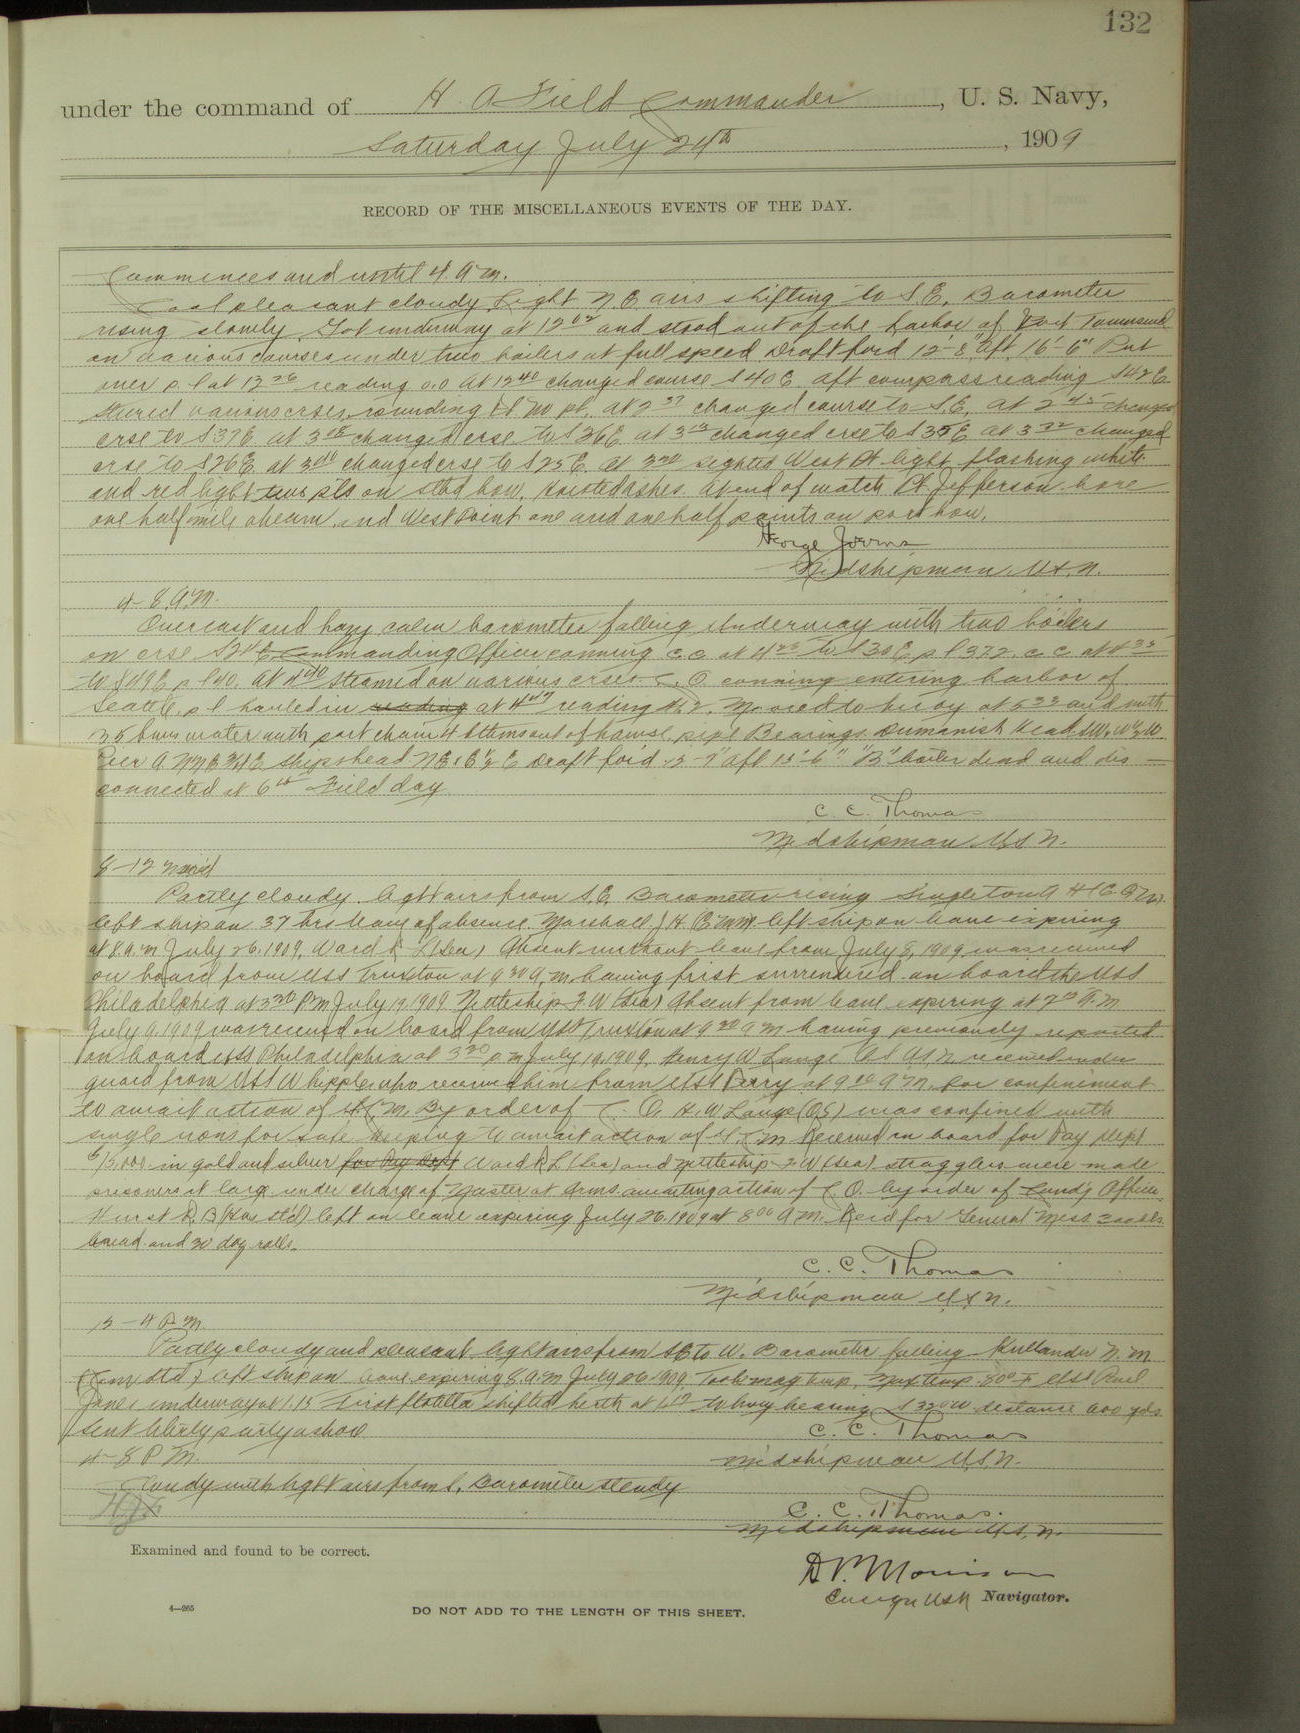 132
under the command of H. A Field Commander, U. S. Navy,
Saturday July 24th, 1909
RECORD OF THE MISCELLANEOUS EVENTS OF THE DAY.
Commences and until 4 A.M.
Cool pleasant cloudy Light N.E. airs shifting to S.E. Barometer
rising slowly. Got underway at 12 02 and stood out of the harbor of Port Townsend
on various courses under two boilers at full speed Draft ford 12'-8" aft 16'-6" Put
over p.l at 12 26 reading 0.0 At 12 40 changed course S 40 E aft compass reading S 42 E
Steered various crses rounding at 2 37 changed course to S.E. at 2 45 changed
crse to S 37 E at 3 08 changed crse to S 26 E at 3 13 changed crse to S 35 E at 3 22 changed
crse to S 26 E at 3 40 changed crse to S 25 E. at 3 50 sighted West Pt light flashing white
and red light two pts on stbd bow. Hoisted ashes. At end of watch Pt. Jefferson bore
one half mile abeam and West Point one and one half points on port bow.
George
Midshipman U.S.N.
4-8 A.M.
Overcast and hazy calm barometer falling Underway with two boilers
on crse Commanding Officer conning c.c. at 4 25 to S 30 E p l 37.2. c.c at 4 35
to S 49 E p l 40. At 4 40 steamed on various crses C. O. conning entering harbor of
Seattle. p l hauled in reading at 4 47 reading 41.2. Moored to buoy at 5 33 and with
fms water with port chain out of hawse pipe Bearings Duwamish Head
Pier A Draft ford aft 15'-6" "B" boiler dead and dis-
connected at 6 Field day
C. C. Thomas
Midshipman U.S N.
8-12 Merid
Partly cloudy. light airs from S.E. Barometer rising Singleton
left ship on 37 hrs leave of absence. Marshall J H left ship on leave expiring
at 8 A.M July 26. 1909. Ward R L (Sea) Absent without leave from July 8, 1909 was received
on board from USS Truxton at 9 30 A.M. having first surrendered on board the USS
Philadelphia at 3 30 P.M July 19 1909 Nettleship F. W (Sea) Absent from leave expiring at 7 A.M
July 9. 1909 was received on board from USS Truxton at 9 30 A M having previously reported
on board USS Philadelphia at 3 30 p.m July 19, 1909. Henry W Lange received under
guard from USS Whipple who received him from USS Perry at 9 A M. for confinement
to await action of By order of C. O. H. W Lange (O.S) was confined with
single irons for safe keeping to await action of Received on board for Pay Dept
$15,000 in gold and silver for Pay Dept Ward R L (Sea) and Nettleship F W (Sea) stragglers were made
prisoners at large under charge of Master at Arms awaiting action of C. O. by order of Comd'g Officer.
Hurst R. B left on leave expiring July 26. 1909 at 8 00 A M. Rec'd for General Mess 200 lbs
bread and 30 doz rolls.
C. C. Thomas
Midshipman U.S.N.
12-4 P.M.
Partly cloudy and pleasant light airs from SE to W. Barometer falling Kullander N. M
left ship on leave expiring 8. A.M July 26 1909. Took mag temp. Max temp. 80° F USS Paul
Jones underway at 1.15 First flotilla shifted berth at 1.17 to buoy bearing distance 600 yds
Sent liberty party ashore
C. C. Thomas
Midshipman U.S.N.
4-8 P M.
Cloudy with light airs from S. Barometer steady
C. C. Thomas.
Midshipman U.S. N.
Examined and found to be correct.
Ensign USN Navigator.
4—265
DO NOT ADD TO THE LENGTH OF THIS SHEET.